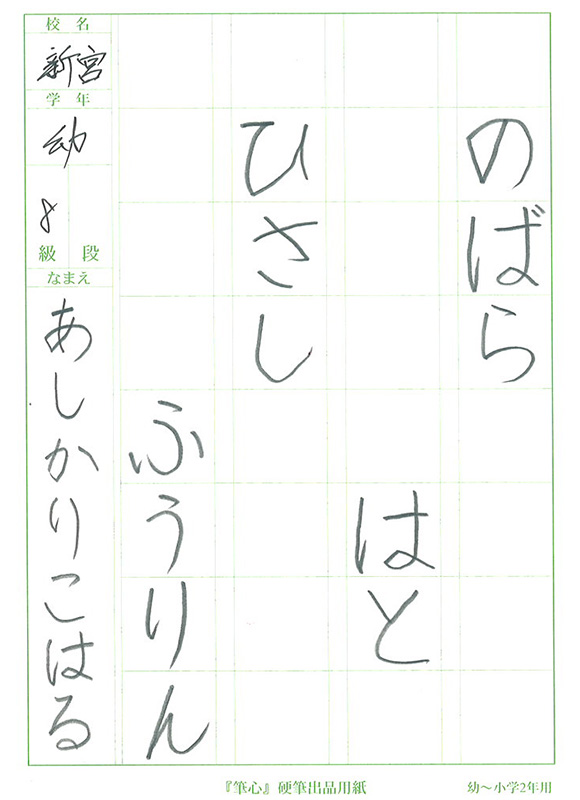 のばら
はと
ひさし
ふうりん
校名
新宮
学年
幼
8
級 段
なまえ
あしかりこはる
『筆心』硬筆出品用紙
幼～小学2年用